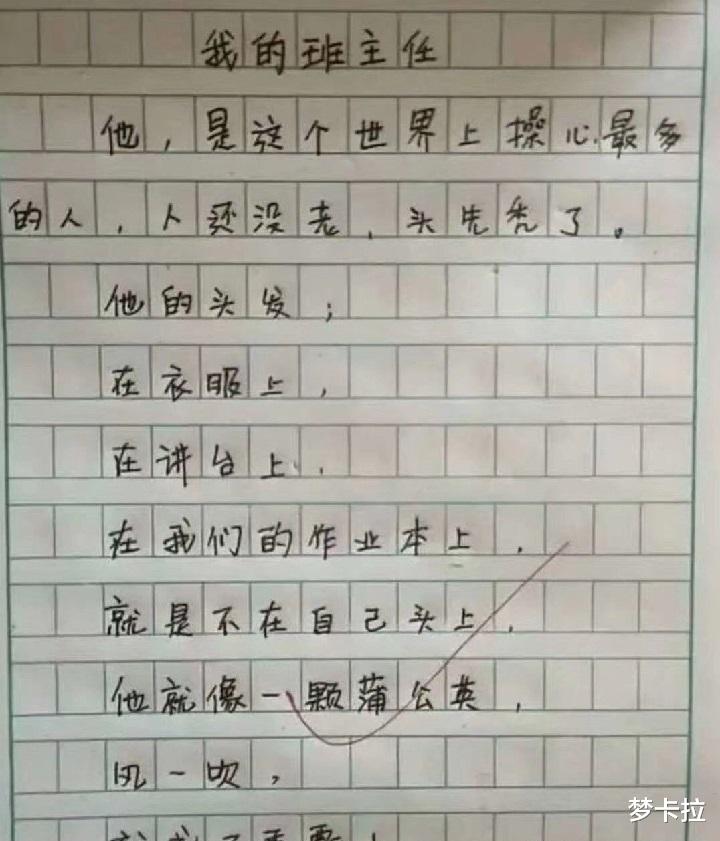 我的班主任
他，是这个世界上操心最多
的人，人还没老，头先秃了。
他的头发；
在衣服上，
在讲台上，
在我们的作业本上，
就是不在自己头上，
他就像一颗蒲公英，
风一吹，
梦卡拉